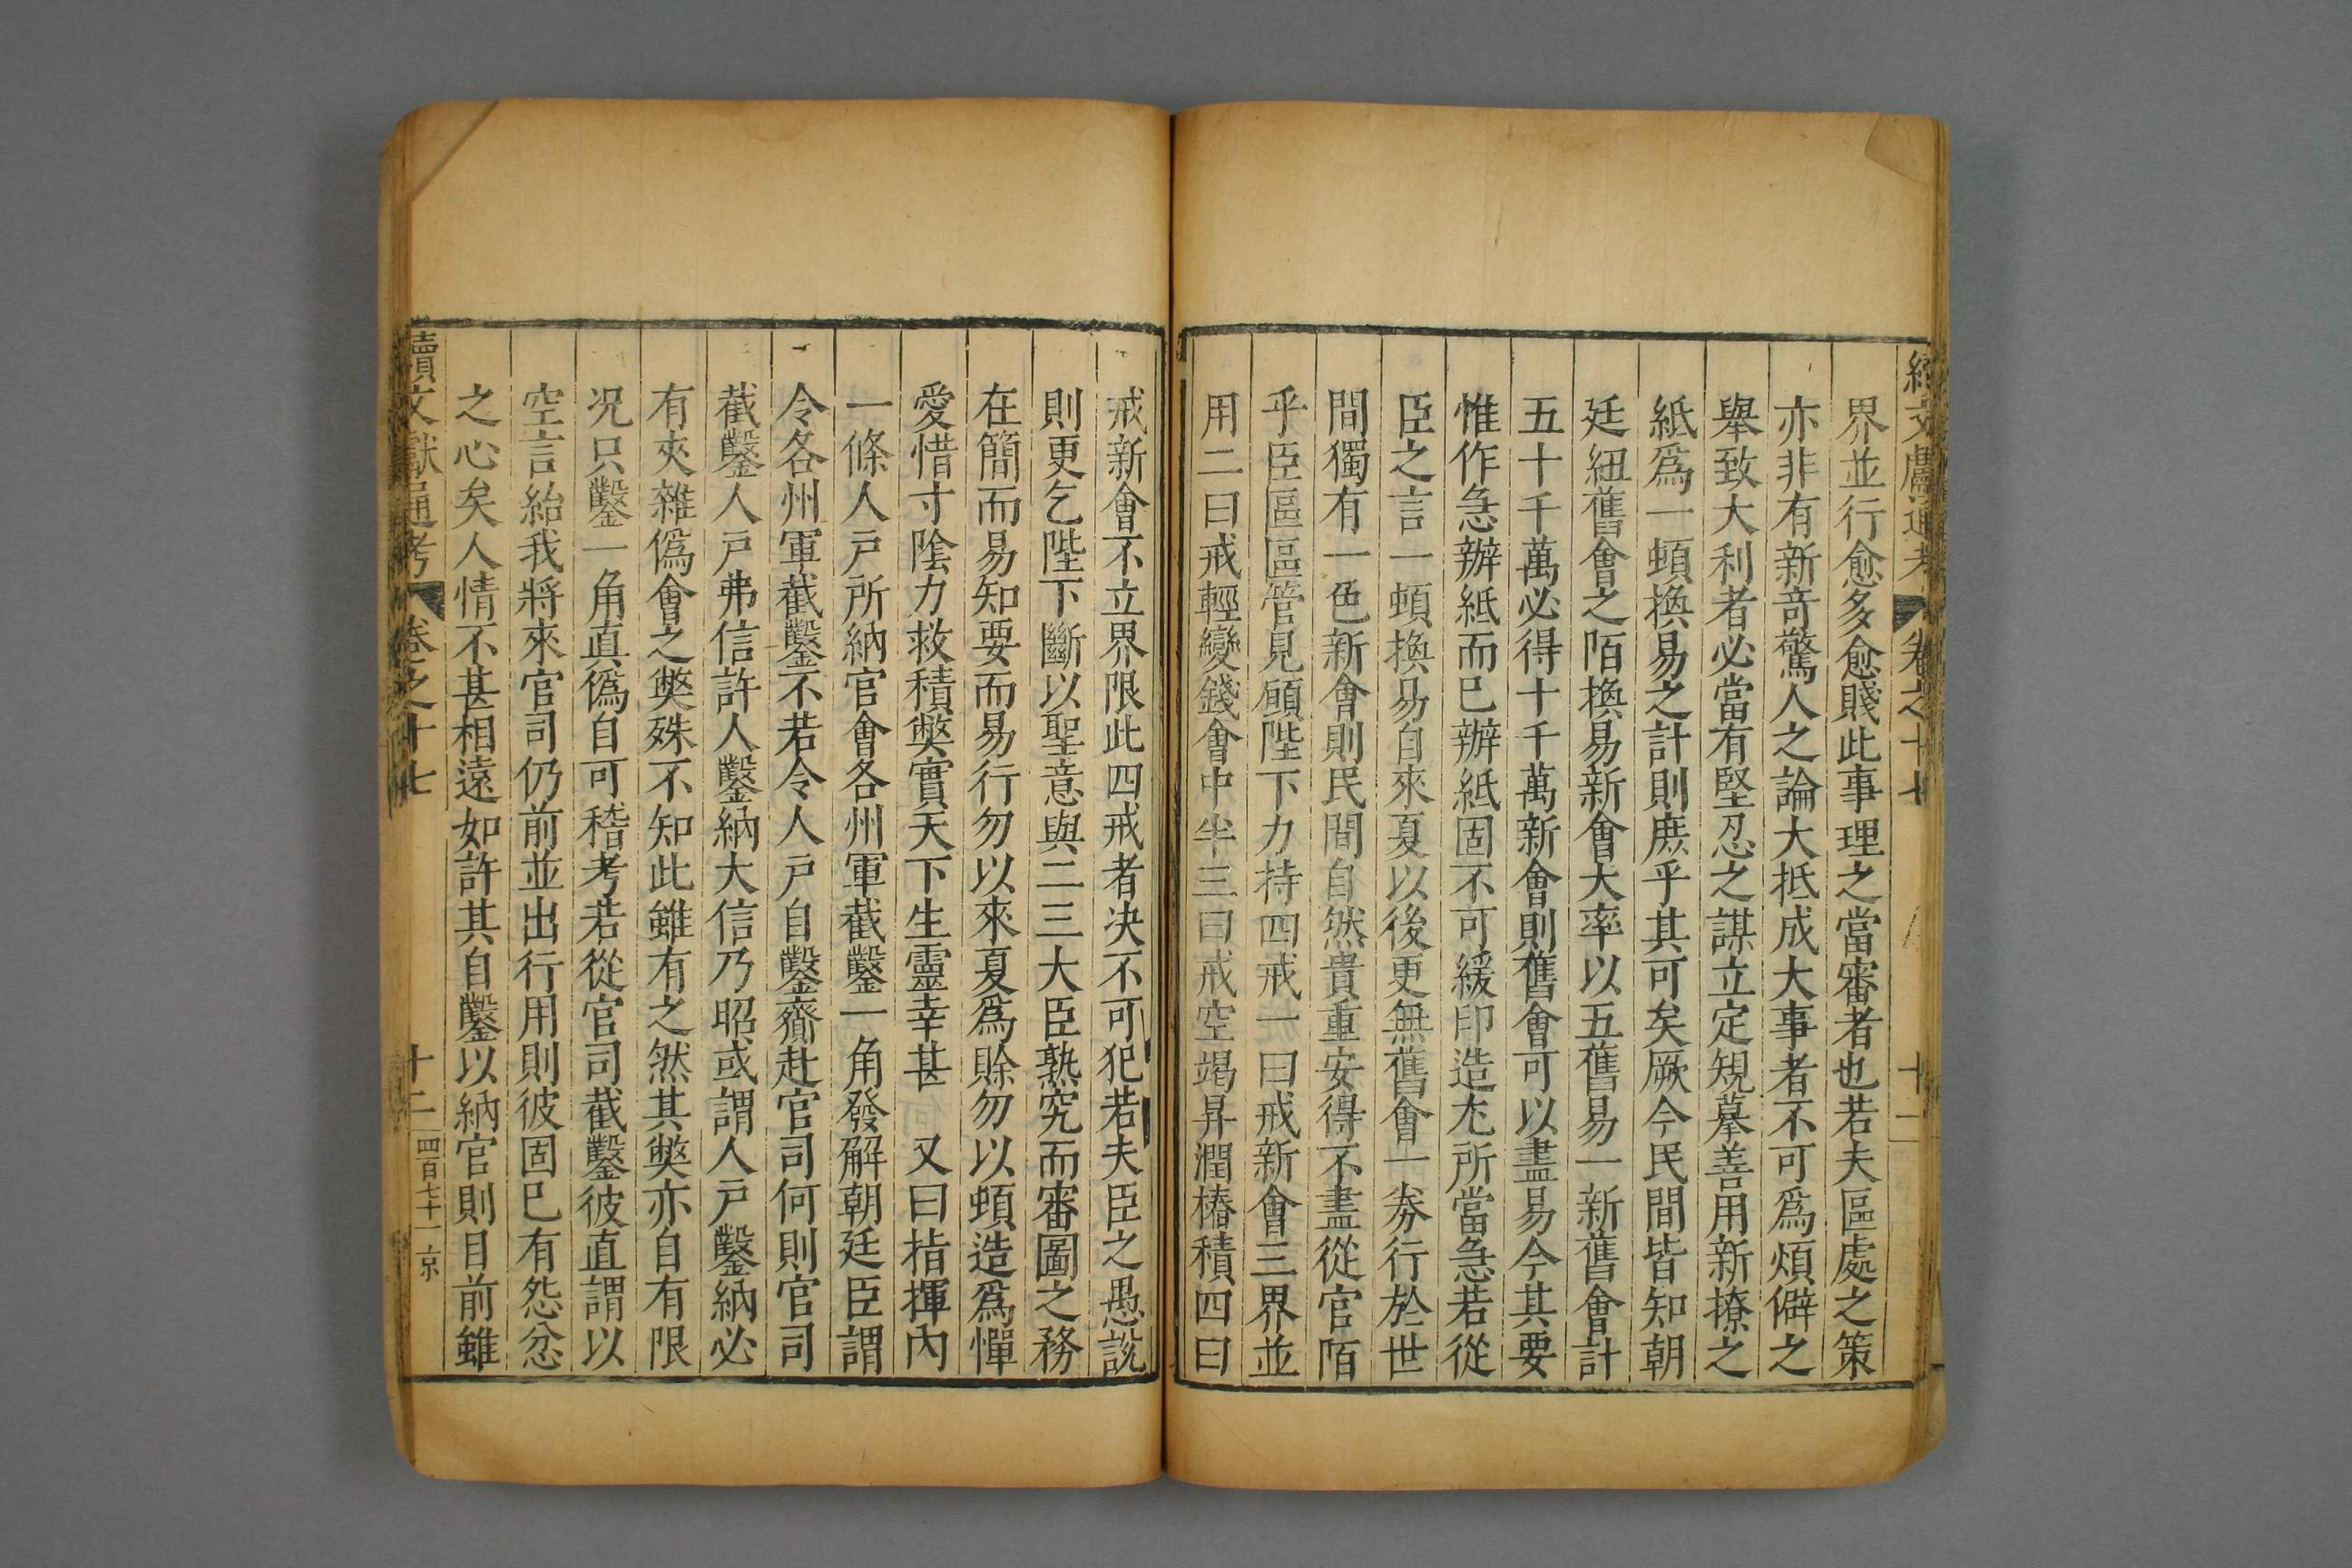 續文獻通考 卷之十七 十一
界並行愈多愈賤此事理之當審者也若夫區處之策
亦非有新奇驚人之論大抵成大事者不可爲煩僻之
舉致大利者必當有堅忍之謀立定規摹善用新撩之
紙爲一頓換易之計則庶乎其可矣厥今民間皆知朝
廷紐舊會之陌換易新會大率以五舊易一新舊會計
五十千萬必得十千萬新會則舊會可以盡易今其要
惟作急辦紙而已辦紙固不可緩印造尤所當急若從
臣之言一頓換易自來夏以後更無舊會一券行於世
間獨有一色新會則民間自然貴重安得不盡從官陌
乎臣區區管見願陛下力持四戒一曰戒新會三界並
用二曰戒輕變錢會中半三曰戒空竭昇潤樁積四曰
戒新會不立界限此四戒者决不可犯若夫臣之愚說
則更乞陛下斷以聖意與二三大臣熟究而審圖之務
在簡而易知要而易行勿以來夏爲賒勿以頓造爲憚
愛惜寸陰力救積獘實天下生靈幸甚 又曰指揮內
一條人戶所納官會各州軍截鑿一角發解朝廷臣謂
令各州軍截鑿不若令人戶自鑿齎赴官司何則官司
截鑿人戶弗信許人鑿納大信乃昭或謂人戶鑿納必
有夾雜僞會之獘殊不知此雖有之然其獘亦自有限
况只鑿一角真僞自可稽考若從官司截鑿彼直謂以
空言紿我將來官司仍前並出行用則彼固已有怨忿
之心矣人情不甚相遠如許其自鑿以納官則目前雖
續文獻通考 卷之十七 十二 四百七十一 京